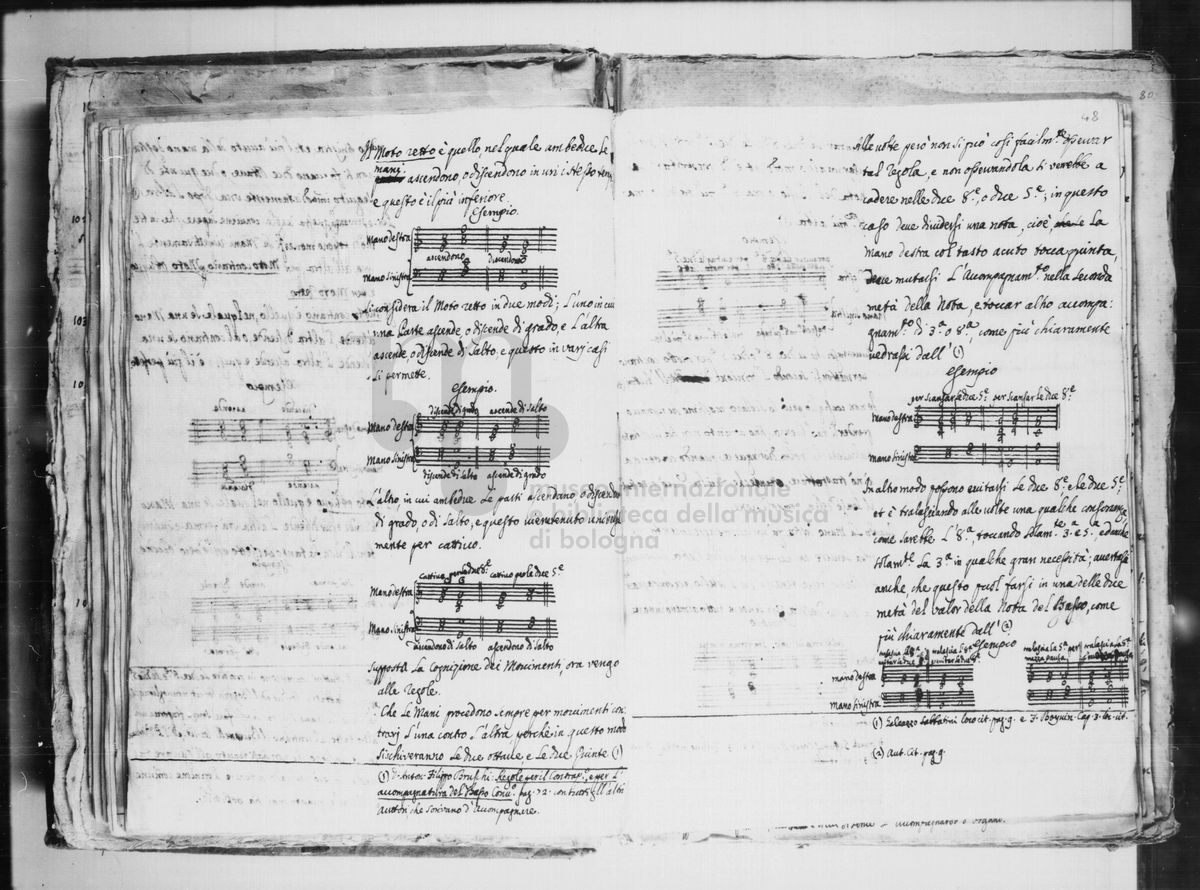 Moto retto è quello, nel quale ambedue le
mani
ascendono, o discendono in un'istesso tempo
e questo è il più inferiore.
Esempio.
Mano destra
ascendono discendono
Mano sinistra
Si considera il Moto retto in due modi; L'uno in cui
una Parte ascende o discende di grado, e L'altra
ascende, o discende di Salto, e questo in varj casi
si permette.
Esempio.
discende di grado ascende di Salto
Mano destra
Mano sinistra
discende di Salto ascende di grado
L'altro, in cui ambedue Le parti ascendano, o discendano
di grado, o di Salto, e questo vien tenuto
mente per cattivo.
cattivo per le due 8.e cattivo per le due 5.e
Mano destra
Mano sinistra
ascendono di Salto ascendono di Salto
Supposta La Cognizione dei Movimenti, ora vengo
alle Regole.
Che Le Mani procedono sempre per movimenti con
trarj L'una contro L'altra perchè in questo modo
si schiveranno Le due ottave, e Le due Quinte (1)
(1) Autor. Filippo Regole per il Contrap.o, e per L'
accompagnatura del Basso Conti.o pag. 72. con tutti gl'altri
Autori che scrivano d'Accompagnare.
48
80
Alle volte però non si può così facilm.te osservar
tal Regola, e non osservandola si verebbe a
cadere nelle due 8.e, o due 5.e; in questo
caso deve dividersi una nota, cioè La
Mano destra col tasto acuto tocca quinta,
deve mutarsi L'Acompagnam.to nella Seconda
metà della Nota, e toccar altro accompa:
gnam.to di 3.a o 8.a, come più chiaramente
vedrassi dall' (1)
Esempio
per scansar le due 5.e per scansar le due 8.e
Mano destra
Mano sinistra
In altro modo possono evitarsi Le due 8.e, e Le due 5.e,
et è tralasciando alle volte una qualche consonanza,
come sarebbe L'8.a, toccando solam.te 3.a e 5.a, ed anche
solam.te La 3.a in qualche gran necessità; avertasi
anche, che questo puol farsi in una delle due
metà del valor della Nota del Basso, come
più chiaramente dall' (2)
Esempio
tralascia la 5.a per tralascia la 5.a
mano destra
mano sinistra
(1) Sabbatini loco cit. pag. 9. e Cap. 3. loc. cit.
(2) Aut. Cit. pag. 9
museo internazionale
e biblioteca della musica
di bologna